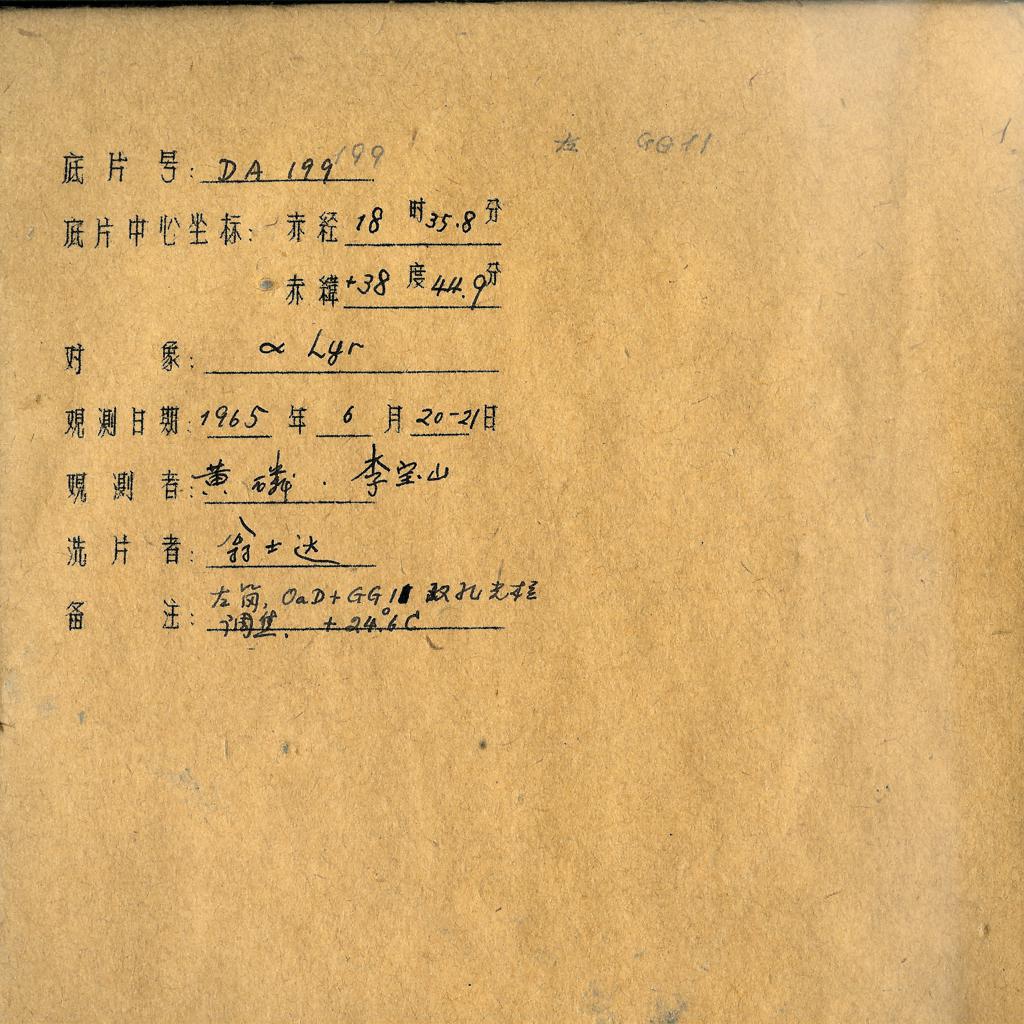 左 GG11
底片号: DA 199 199
底片中心坐标: 赤経 18 时 35.8 分
赤緯 +38 度 44.9 分
对 象: α Lyr
观测日期: 1965 年 6 月 20-21 日
观测者: 黄磷 · 李宝山
洗片者: 翁士达
备 注: 左筒, OaD+GG11 双孔光栏
调焦. +24°.6C